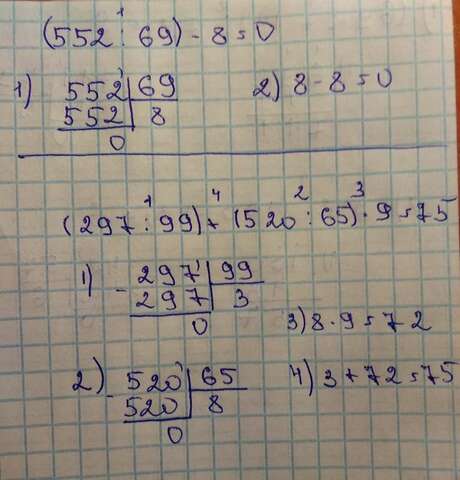 (552 : 69) - 8 = 0
1
1) 552 | 69
552 | 8
0
2) 8 - 8 = 0
1 4 2 3
(297 : 99) + (520 : 65) · 9 = 75
1) - 297 | 99
297 | 3
0
3) 8 · 9 = 72
2) - 520 | 65
520 | 8
0
4) 3 + 72 = 75